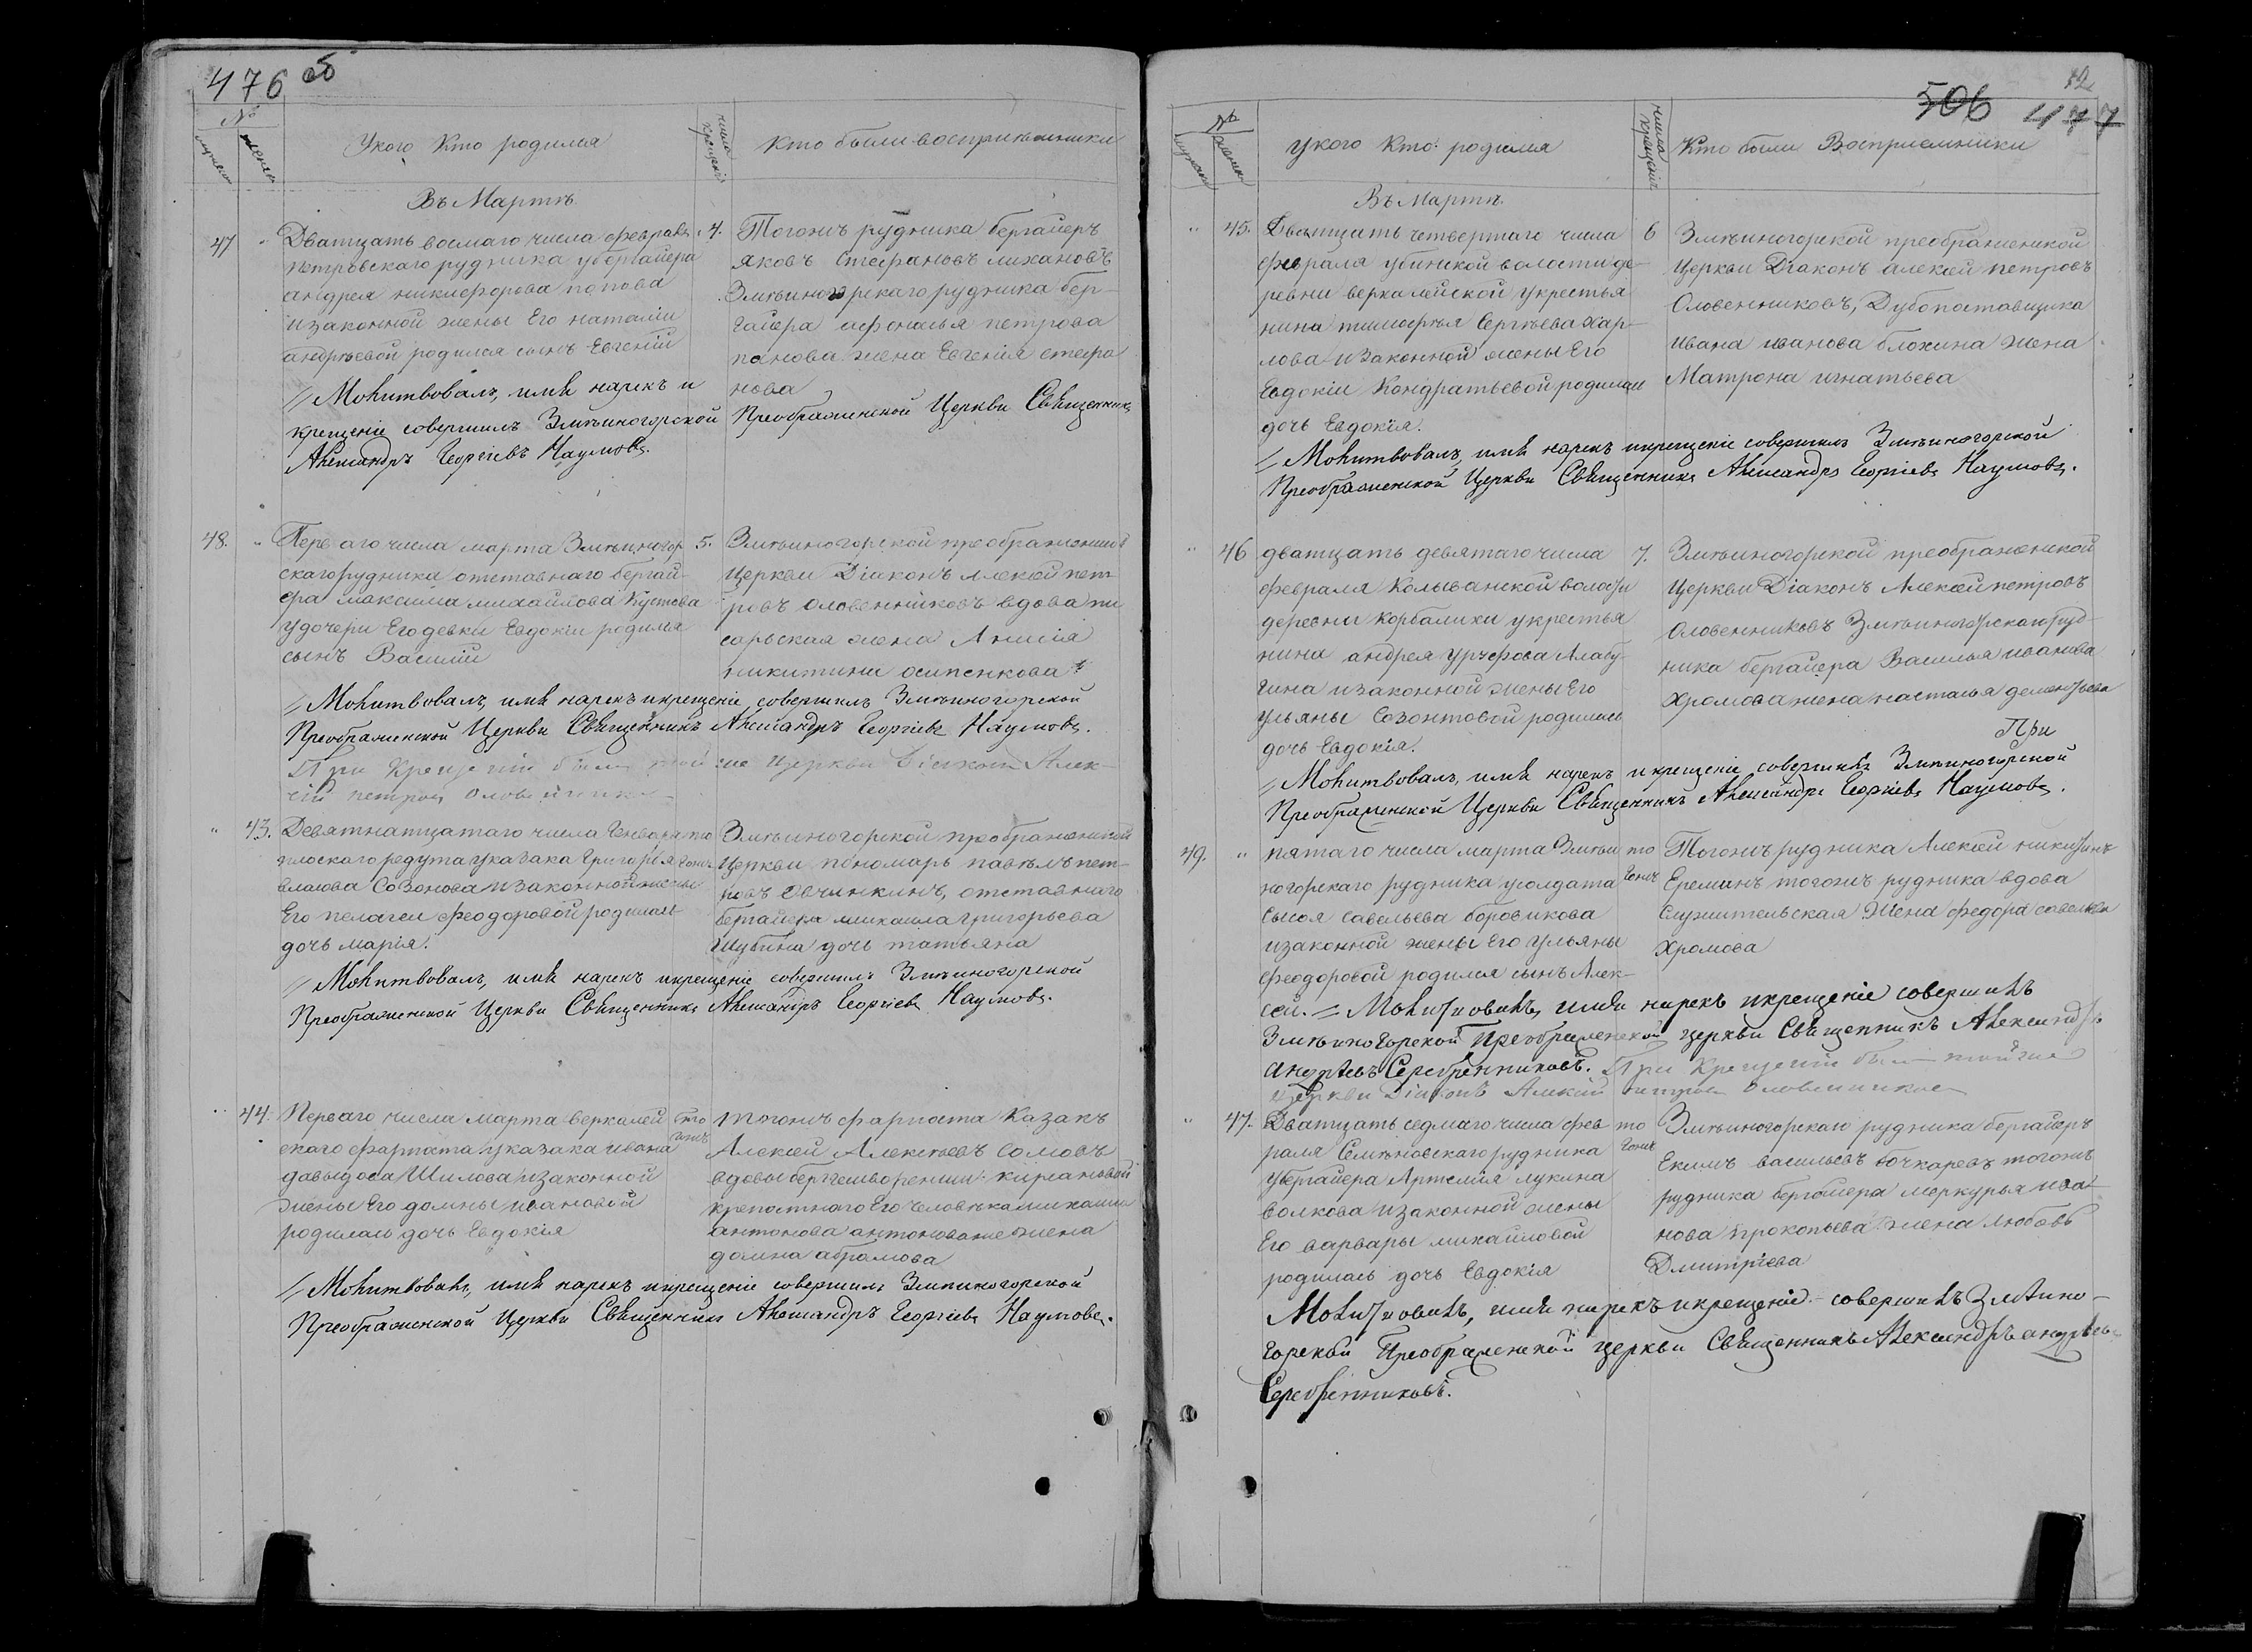 476 об
№
мужеска
женска
У кого Кто родился
числа крещенія
Кто были воспріѣмники
Въ Мартѣ
47
Дватцать восмаго числа февраля
петровскаго рудника у бергайера
андрея никифорова попова
и законной жены Его наталіи
андреевой родился сынъ Евгеній
4.
Тогожъ рудника бергайеръ
яковъ Стефановъ лихановъ
Змѣиногорскаго рудника бер-
гайера афонасья петрова
панова жена Евгенія стефа
нова
Молитвовалъ, имя нарекъ и
крещеніе совершилъ Змѣиногорской Преображенской Церкви Священникъ
Александръ Георгіевъ Наумовъ.
48.
Перваго числа марта Змѣиногор
скаго рудника отставнаго бергай-
ера максима михайлова Кустова
у дочери Его девки Евдокіи родился
сынъ Василій
5.
Змѣиногорской преображенской
Церкви Діаконъ Алексѣй пет-
ровъ оловенниковъ вдова пи
сарьская жена Анисія
никитина осипенкова
Молитвовалъ, имя нарекъ и крещеніе совершилъ Змѣиногорской
Преображенской Церкви Священникъ Александръ Георгіевъ Наумовъ.
При Крещеніи былъ той же Церкви Діаконъ Алек-
сій петровъ Оловенников
43.
Девятнатцатаго числа Генваря
плоскаго редута у казака Григорья
власова Созонова и законной жены
Его пелагеи феодоровой родилась
дочь марія.
тогожъ
Змѣиногорской преображенской
Церкви пономарь павелъ пет-
ровъ Овчинкинъ, отставнаго
бергайера михаила григорьева
Шубина дочь татьяна
Молитвовалъ, имя нарекъ и крещеніе совершилъ Змѣиногорской
Преображенской Церкви Священникъ Александръ Георгіевъ Наумовъ.
44
Перваго числа марта верхалей
скаго фарпоста у казака ивана
давыдова Шилова и законной
жены Его домны ивановой
родилась дочь Евдокія
тогожъ
Тогожъ фарпоста Казакъ
Алексѣй Алексѣевъ Сомовъ
вдовы бергешворенши кирановой
крепостнаго Его человѣка михаила
антонова жена
домна абрамова
Молитвовалъ, имя нарекъ и крещеніе совершилъ Змѣиногорской
Преображенской Церкви Священникъ Александръ Георгіевъ Наумовъ.
12
506 477
№
мужеска
женска
у кого Кто родился
числа крещенія
Кто были Восприемники
Въ Мартѣ.
45.
Дватцать четвертаго числа
февраля убинской волости де-
ревни верхалейской у крестья
нина тимофѣя Сергѣева Хар-
лова и законной жены Его
Евдокіи Кондратьевой родилась
дочь Евдокія.
6
Змѣиногорской преображенской
Церкви Діаконъ алексѣй петровъ
Оловенниковъ, Дубопоставщика
ивана иванова блохина жена
Матрона игнатьева
Молитвовалъ, имя нарекъ и крещеніе совершилъ Змѣиногорской
Преображенской Церкви Священникъ Александръ Георгіевъ Наумовъ.
46
дватцать девятаго числа
февраля Колыванской волости
деревни Корбалихи у крестья
нина андрея Алабу-
гина и законной жены Его
ульяны Созонтовой родилась
дочь Евдокія.
7.
Змѣиногорской преображенской
Церкви Діаконъ Алексѣй петровъ
Оловенниковъ Змѣиногорскаго руд-
ника бергайера Василья иванова
Хромова жена настасья дементьева
При
Молитвовалъ, имя нарекъ и крещеніе совершилъ Змѣиногорской
Преображенской Церкви Священникъ Александръ Георгіевъ Наумовъ.
49.
пятаго числа марта Змѣи
ногорскаго рудника у солдата
Сысоя савельева боровикова
и законной жены Его ульяны
феодоровой родился сынъ Алек-
сей.
тогожъ
Тогожъ рудника Алексѣй никитинъ
Ереминъ тогожъ рудника вдова
Служительская жена федора савельева
Хромова
Молитвовалъ, имя нарекъ и крещеніе совершилъ
Змѣиногорской Преображенской церкви Священникъ Александръ
Андреевъ Серебренниковъ. При Крещеніи былъ той же
церкви Діаконъ Алексій петровъ Оловенников
47.
Дватцать седмаго числа фев
раля Семѣновскаго рудника
у бергайера Артемія лукина
волкова и законной жены
Его варвары михайловой
родилась дочь Евдокія
тогожъ
Змѣиногорскаго рудника бергайеръ
Екимъ васильевъ бочкаревъ тогожъ
рудника бергайера меркурья ива
нова прокопьева жена любовь
Дмитріева
Молитвовалъ, имя нарекъ и крещеніе совершилъ Змѣино-
горской Преображенской церкви Священникъ Александръ андреевъ
Серебренниковъ.